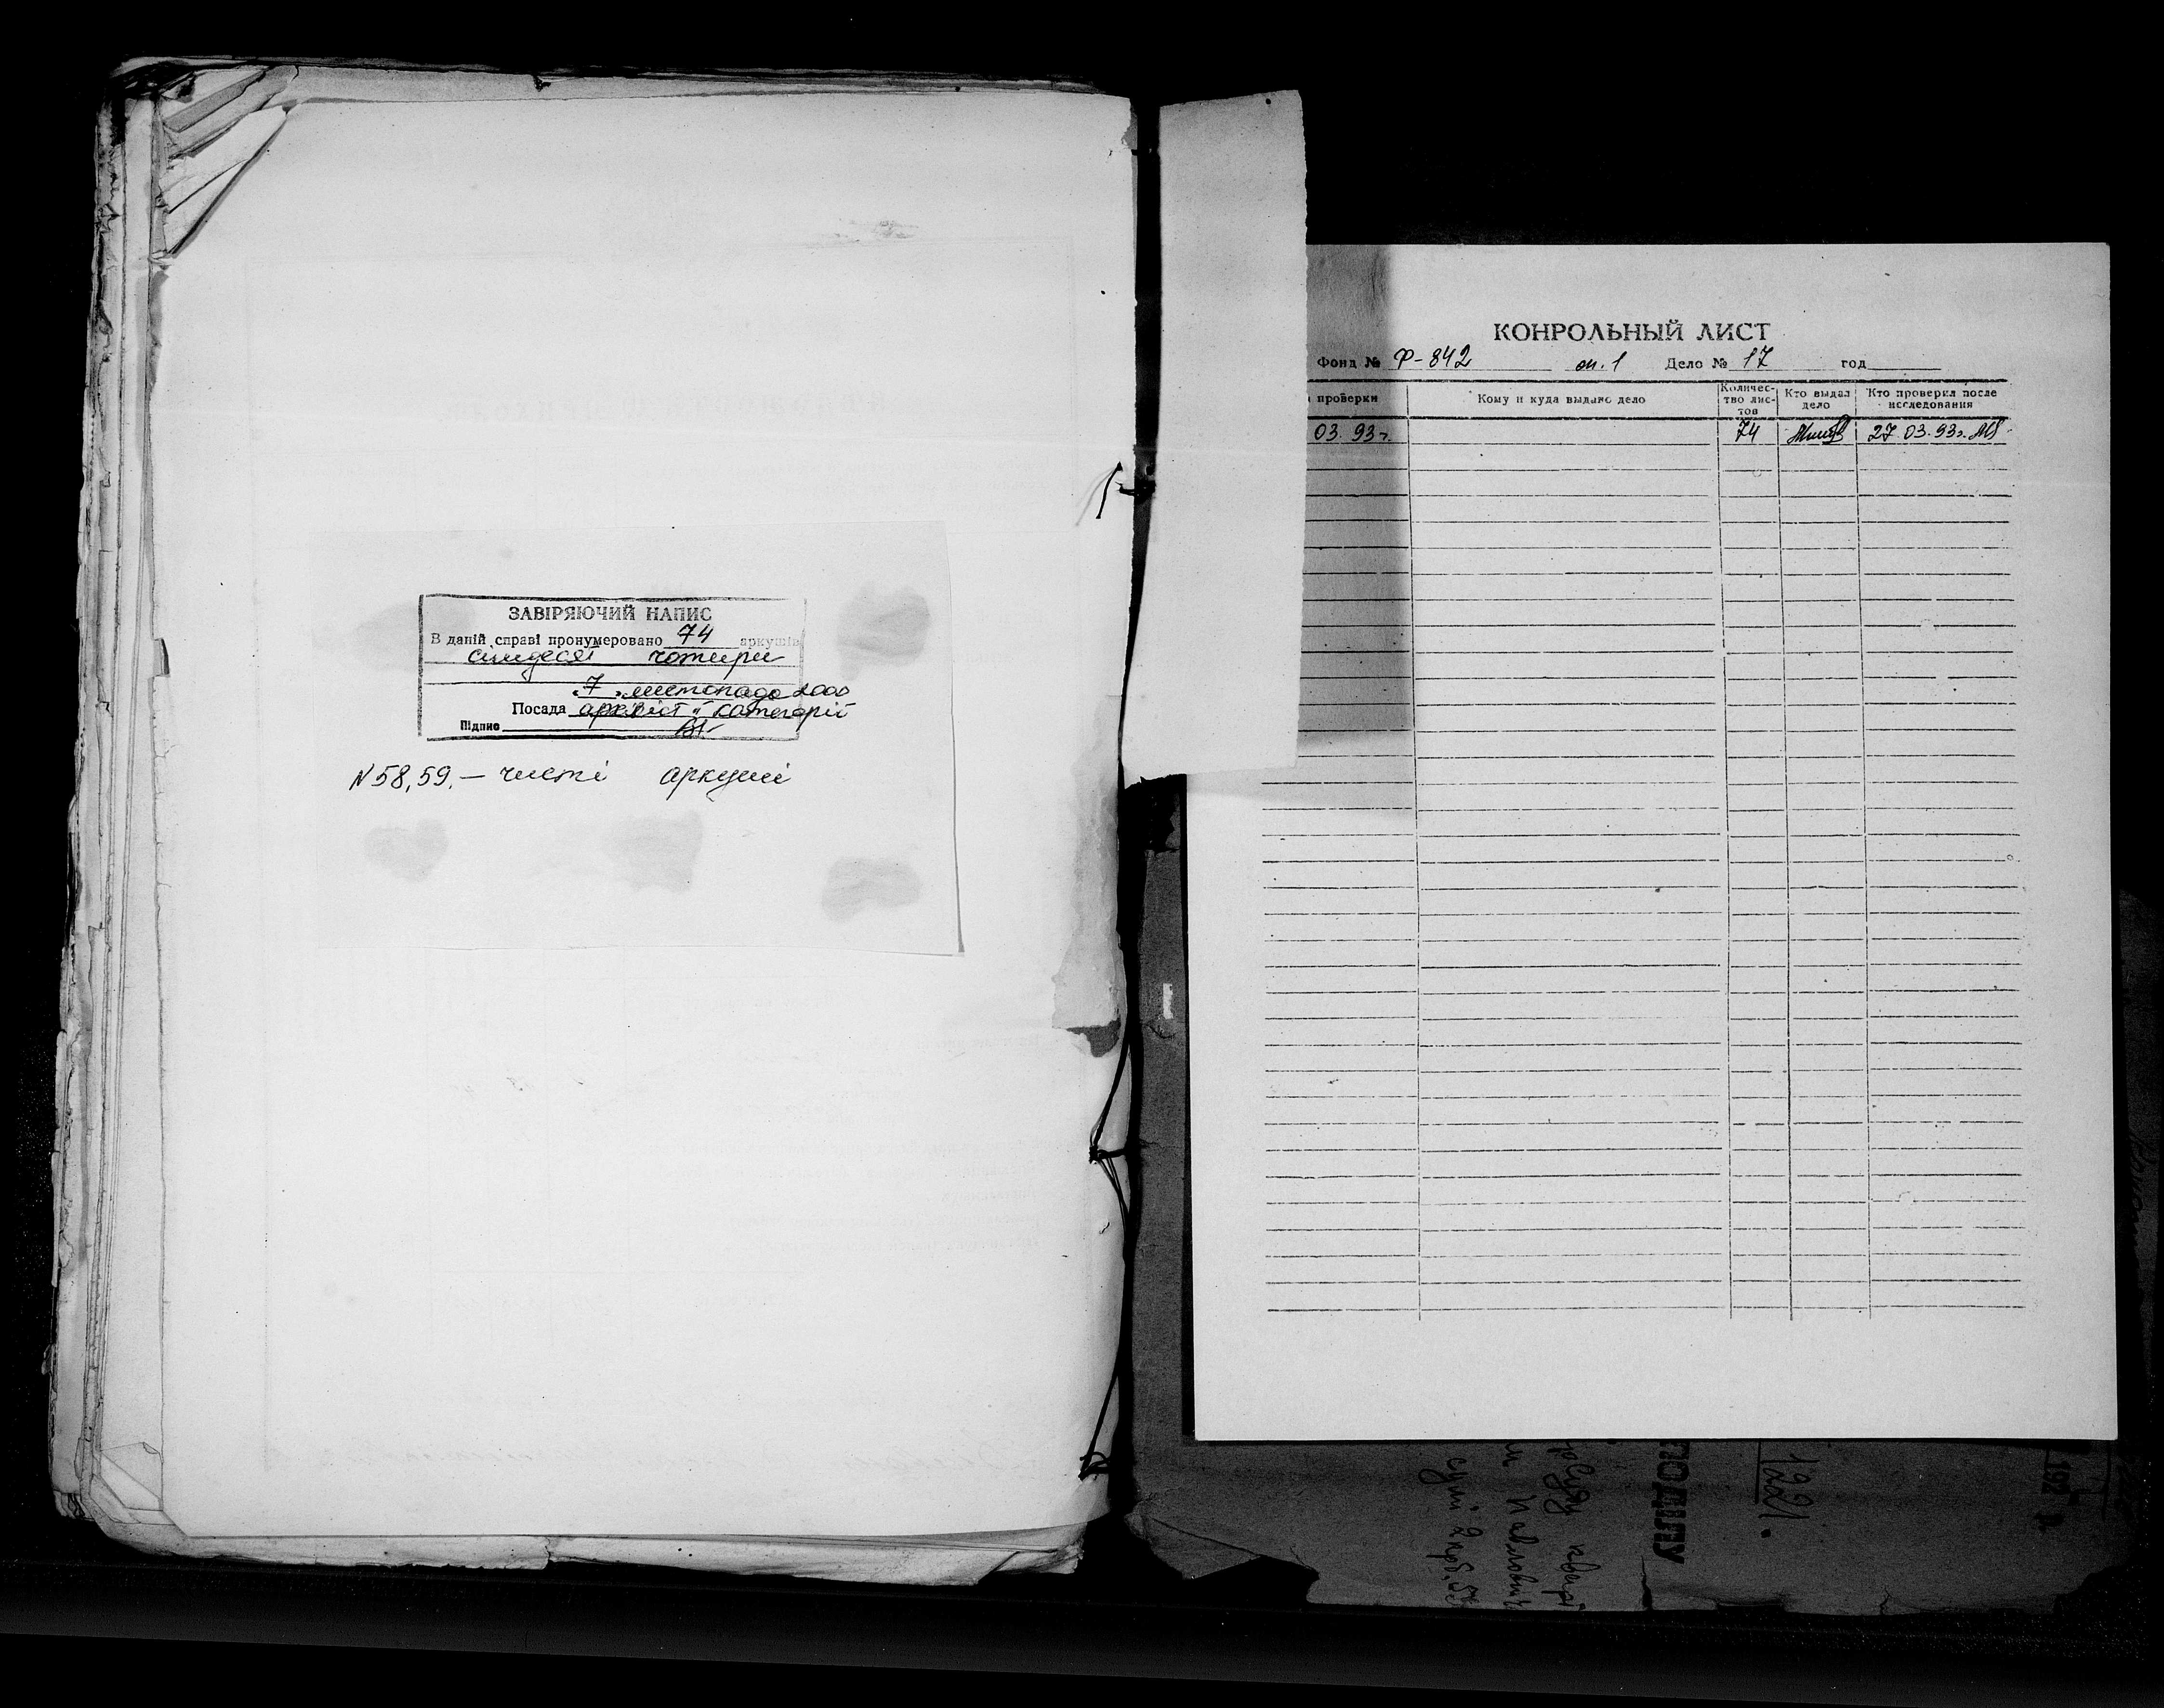 ЗАВІРЯЮЧИЙ НАПИС
В даній справі пронумеровано 74 аркушів
сімдесят чотири
"7" листопада 2000
Посада архівіст II категорії
Підпис
N 58, 59. — чисті аркуші
КОНРОЛЬНЫЙ ЛИСТ
Фонд № Ф-842 оп. 1 Дело № 17 год
проверки
Кому и куда выдано дело
Количес-
тво лис-
тов
Кто выдал
дело
Кто проверил после
исследования
03. 93 г. 74 27 03. 93 г.
1921.
192